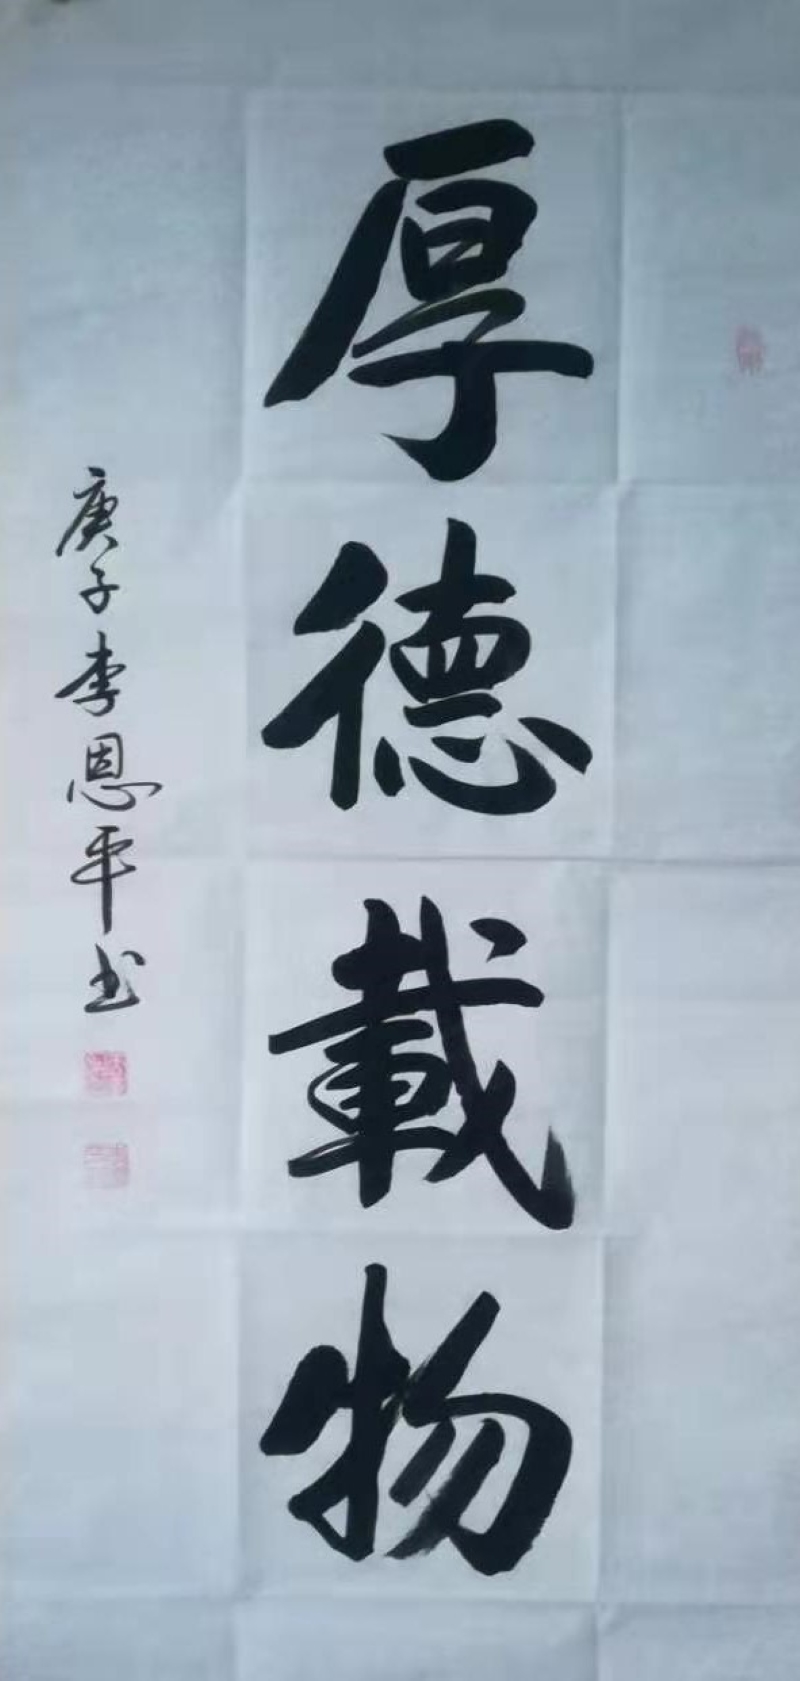 厚德載物
庚子李恩平书